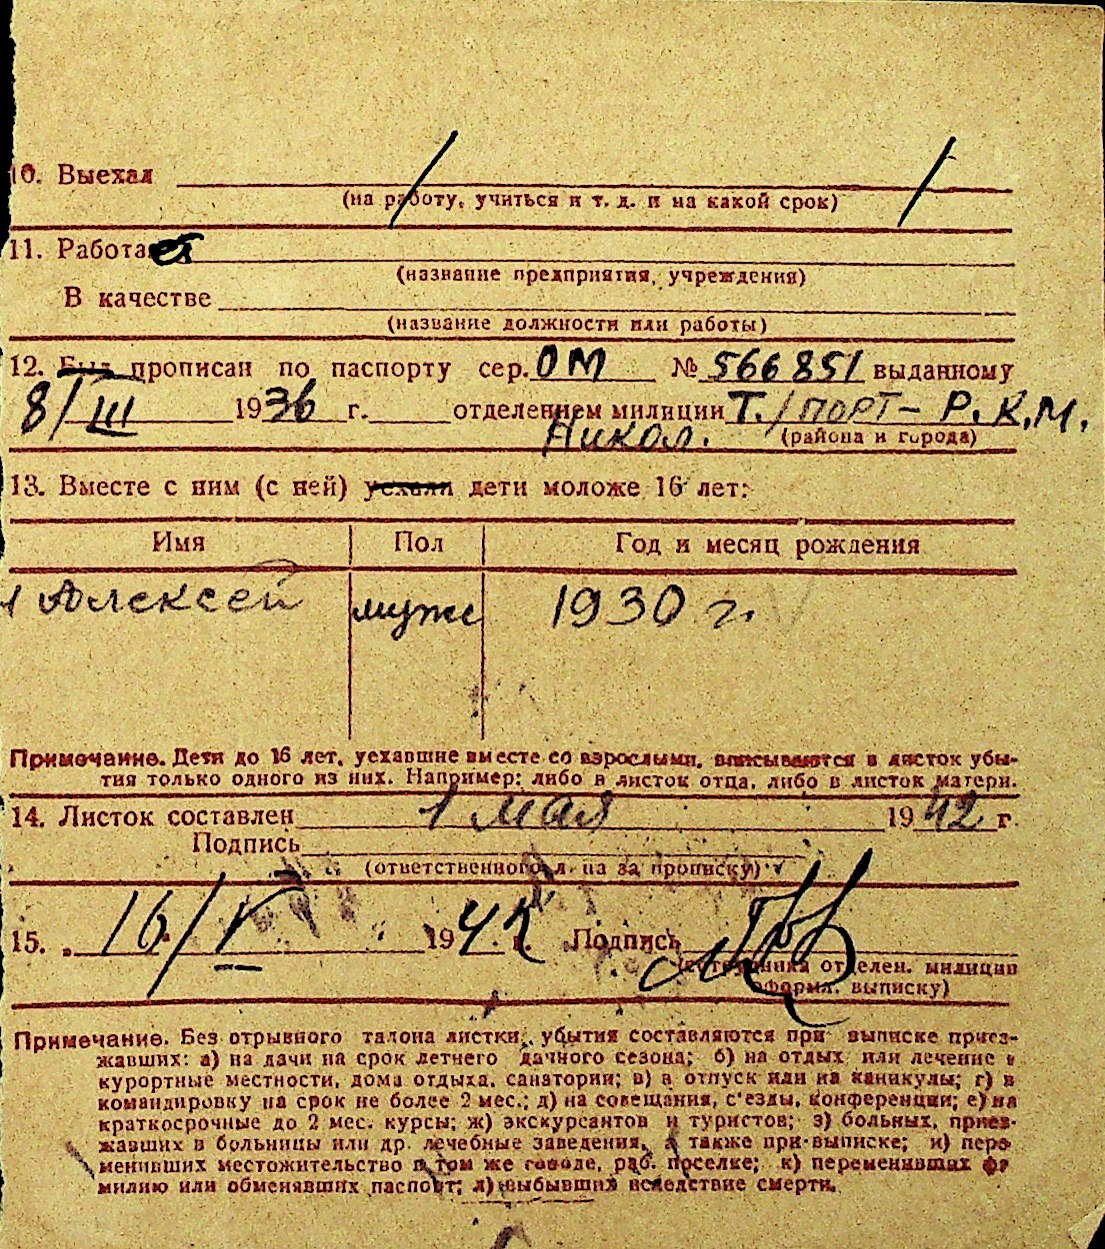 10. Выехал
(на работу, учиться и т. д. и на какой срок)
11. Работает
(название предприятия, учреждения)
В качестве
(название должности или работы)
12. Был прописан по паспорту сер. ОМ № 566851 выданному
8/III 1936 г. отделением милиции Т./ПОРТ – Р.К.М.
Никол. (района и города)
13. Вместе с ним (с ней) уехали дети моложе 16 лет:
Имя Пол Год и месяц рождения
1 Алексей муже 1930 г. V
Примечание. Дети до 16 лет, уехавшие вместе со взрослыми, вписываются в листок убы-
тия только одного из них. Например: либо в листок отца, либо в листок матери.
14. Листок составлен 1 мая 1942 г
Подпись
(ответственного л-ца за прописку)
15. „ 16/V 1942 г. Подпись
(сотрудника отделен. милиции
оформл. выписку)
Примечание. Без отрывного талона листки убытия составляются при выписке приез-
жавших: а) на дачи на срок летнего дачного сезона; б) на отдых или лечение в
курортные местности, дома отдыха, санатории; в) в отпуск или на каникулы; г) в
командировку на срок не более 2 мес.; д) на совещания, с'езды, конференции; е) на
краткосрочные до 2 мес. курсы; ж) экскурсантов и туристов; з) больных, приез-
жавших в больницы или др. лечебные заведения, а также при выписке; и) пере
менивших местожительство в том же городе, раб. поселке; к) переменивших фа
милию или обменявших паспорт; л) выбывших вследствие смерти.